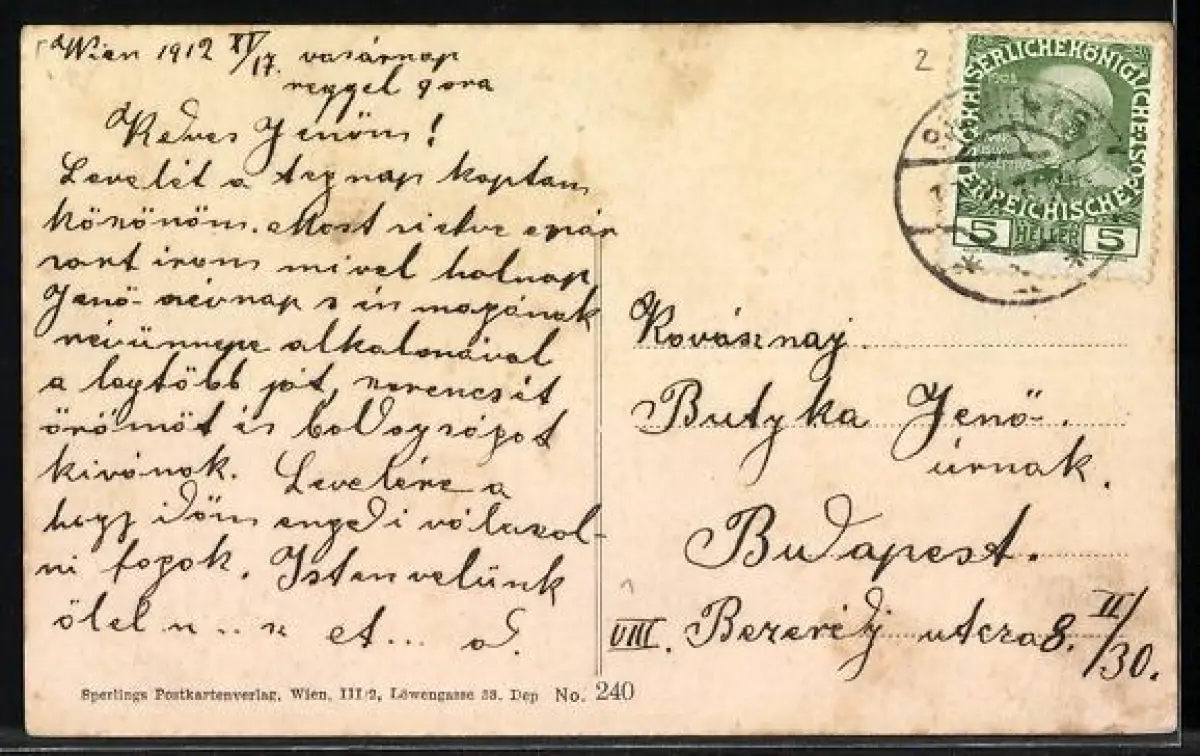 Wien 1912 XI/17. vasárnap
reggel 9 ora
Kedves Jenőm!
Levelét a tegnap kaptam
köszönöm. Most sietve e pár
sort irom mivel holnap
Jenő-névnap s én magának
névünnepe alkalmával
a legtöbb jót, szerencsét
örömöt és boldogságot
kivánok. Levelére a
hogy időm engedi válaszol-
ni fogok. Isten velünk
ölel n . . n et . . .
Sperlings Postkartenverlag, Wien, III/2, Löwengasse 38. Dep No. 240
2
KAISERLICHEKÖNIGLICHE ÖSTERREICHISCHE POST
5 HELLER 5
Kovásznaj
Butyka Jenő
úrnak.
Budapest.
VIII. Bezerédj utcza 8. II/30.